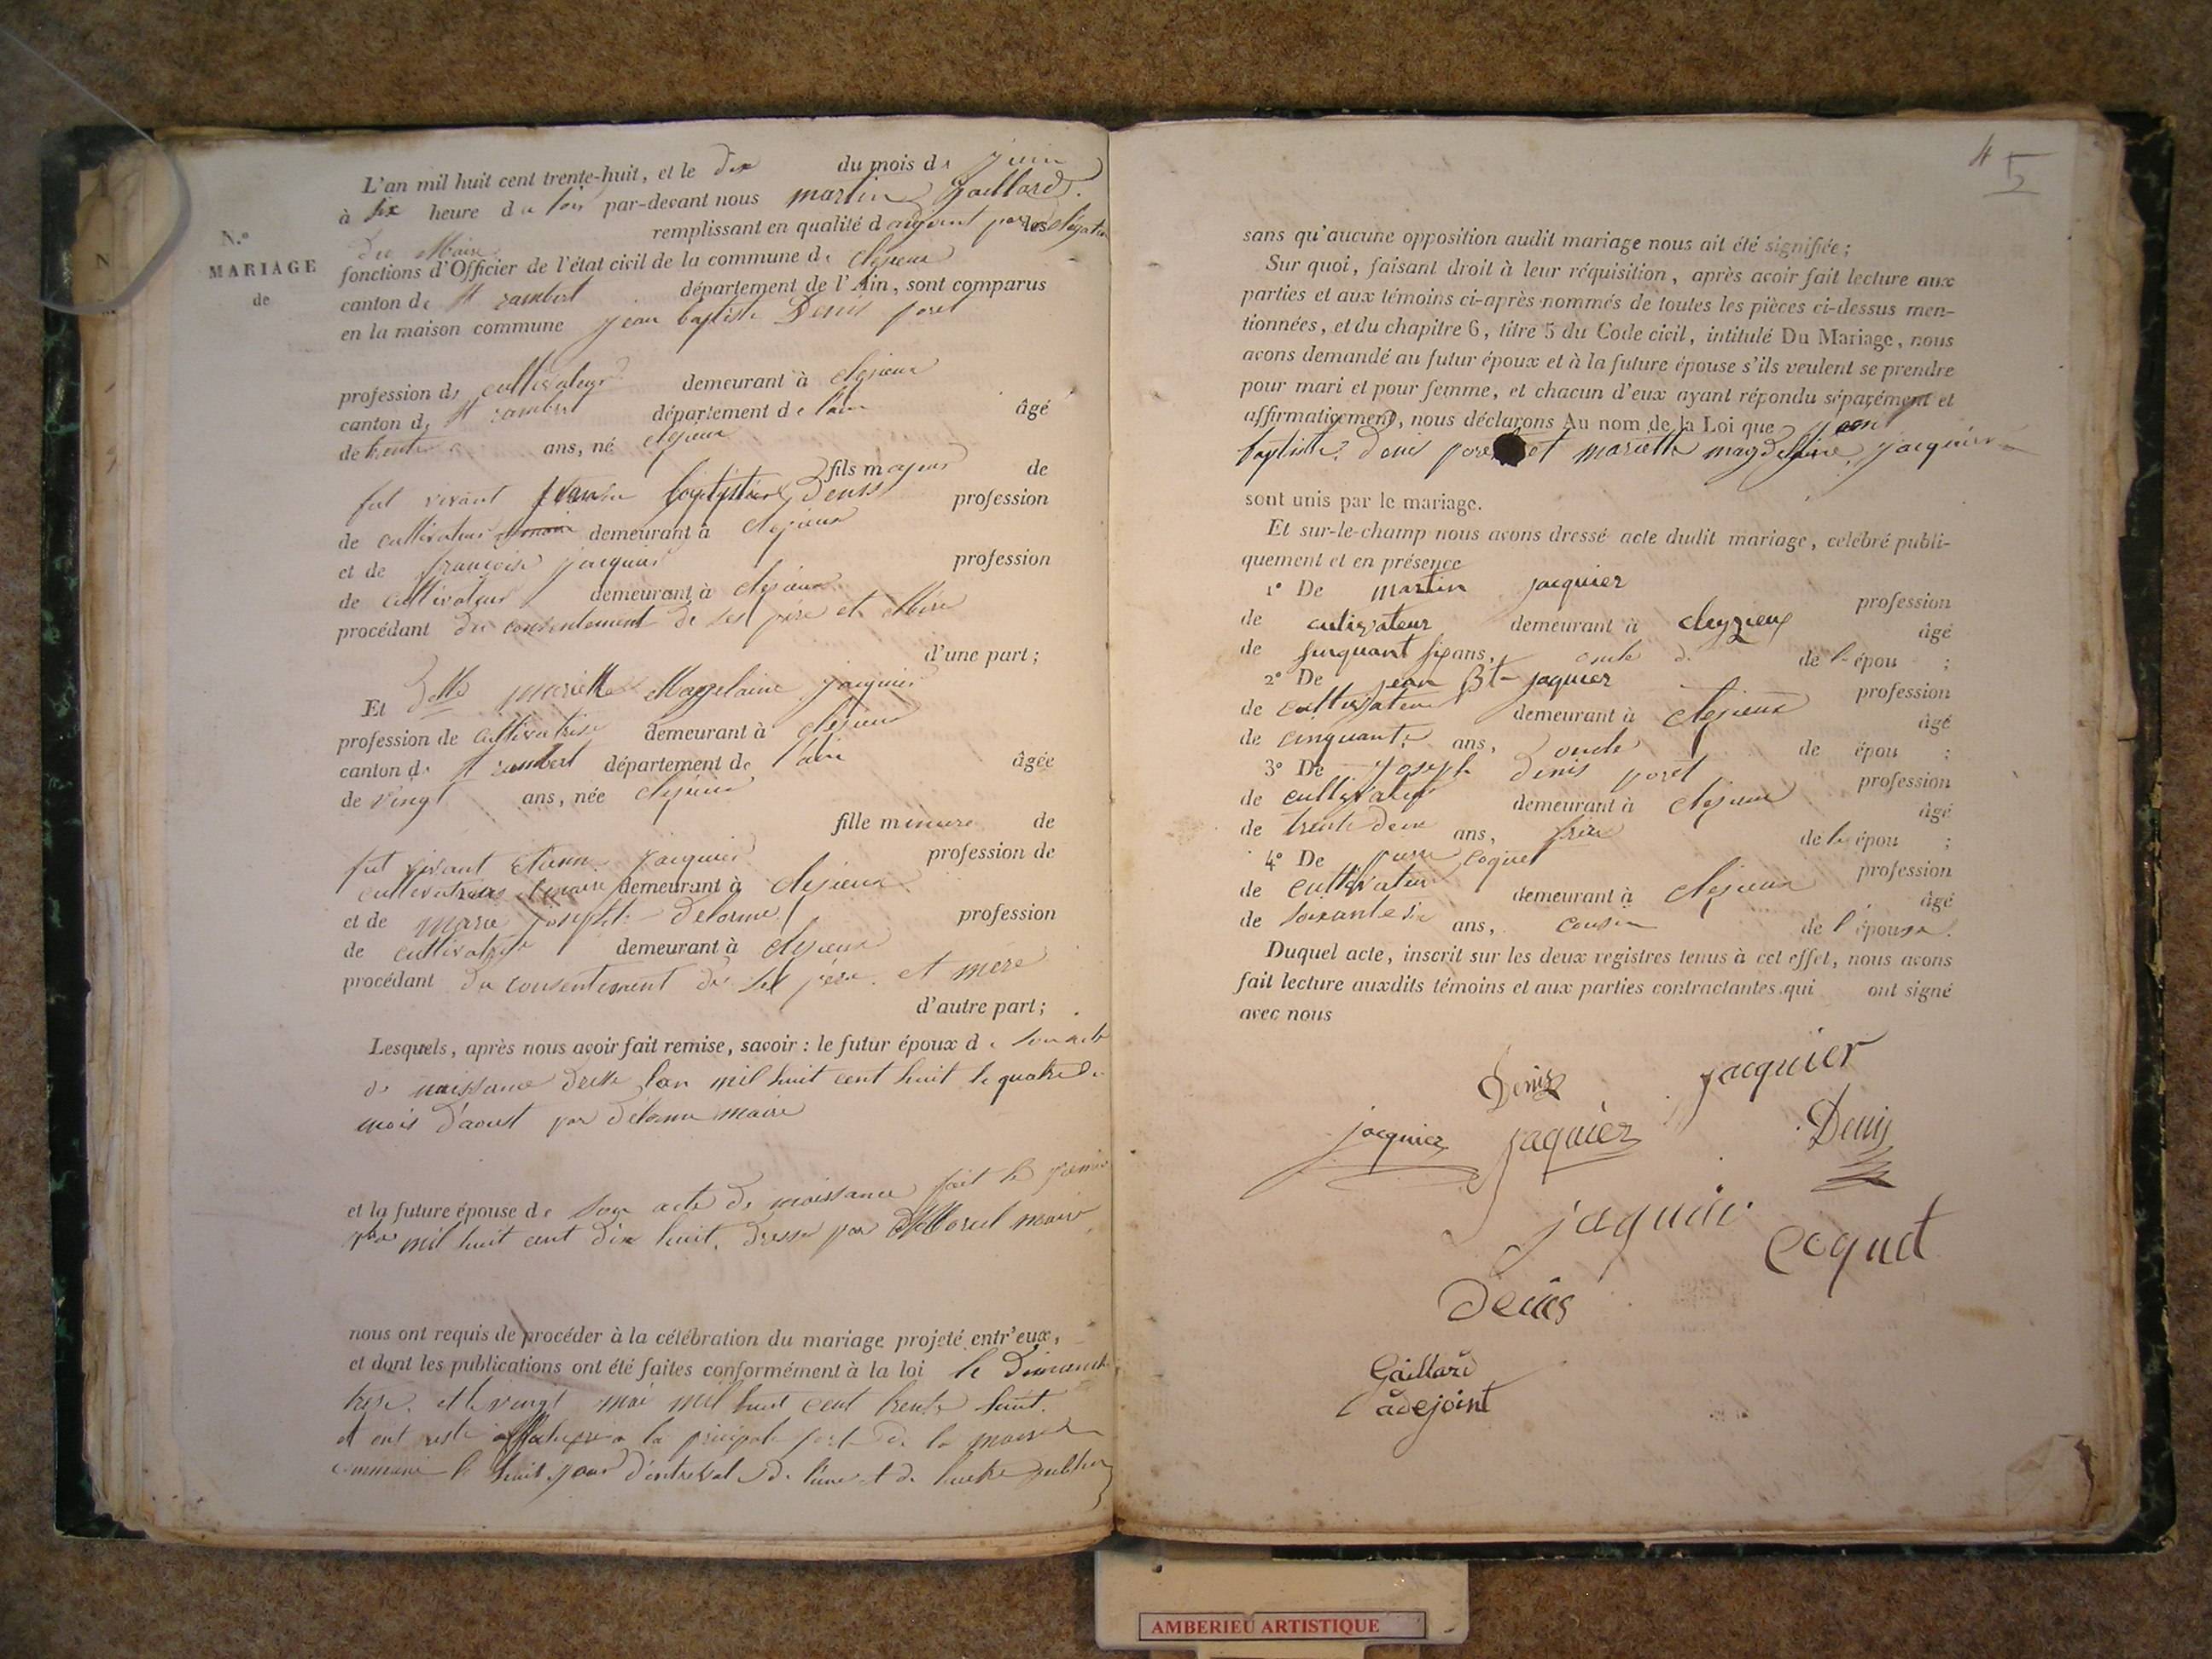 N.º
MARIAGE
de
L'an mil huit cent trente-huit, et le dix du mois de juin
à six heure du soir par-devant nous martin Gaillard.
remplissant en qualité d adjoint par les
du Maire
fonctions d'Officier de l'état civil de la commune de Clesieux
canton de St rambert département de l'Ain, sont comparus
en la maison commune jean baptiste Denis poret
profession de cultivateur demeurant à Clesieux
canton de St rambert département de l'ain âgé
de trente ans, né Clesieux
fils majeur de
fut vivant baptiste denis profession
de cultivateur demeurant à Clesieux
et de françoise jacquier profession
de cultivateur demeurant à Clesieux
procédant du consentement de ses père et Mère
d'une part;
Et Mariette Magdelaine jacquier
profession de cultivatrise demeurant à Clesieux
canton de St rambert département de l'ain âgée
de vingt ans, née Clesieux
fille mineure de
fut vivant jacquier profession de
cultivateur demeurant à Clesieux
et de marie josephte Delorme profession
de cultivatrise demeurant à Clesieux
procédant du consentement de ses père et mère
d'autre part;
Lesquels, après nous avoir fait remise, savoir : le futur époux de son acte
de naissance dressé l'an mil huit cent huit le quatre du
mois d'aoust par Delorme maire
et la future épouse de son acte de naissance fait le
mil huit cent dix huit, dressé par maire
nous ont requis de procéder à la célébration du mariage projeté entr'eux,
et dont les publications ont été faites conformément à la loi le Dimanche
treise et le vingt mai mil huit cent trente huit.
et ont resté la principale porte de la maison
commune le huit jour d'interval de l'une et de l'autre
4 5
sans qu'aucune opposition audit mariage nous ait été signifiée;
Sur quoi, faisant droit à leur réquisition, après avoir fait lecture aux
parties et aux témoins ci-après nommés de toutes les pièces ci-dessus men-
tionnées, et du chapitre 6, titre 5 du Code civil, intitulé Du Mariage, nous
avons demandé au futur époux et à la future épouse s'ils veulent se prendre
pour mari et pour femme, et chacun d'eux ayant répondu séparément et
affirmativement, nous déclarons Au nom de la Loi que jean
baptiste denis poret et mariette magdelaine jacquier
sont unis par le mariage.
Et sur-le-champ nous avons dressé acte dudit mariage, célébré publi-
quement et en présence
1º De martin jacquier profession
de cutivateur demeurant à cleyzieux âgé
de sinquant six ans, oncle de l'épou ;
2º De jean Bt jaquier profession
de cultivateur demeurant à Clesieux âgé
de cinquante ans, oncle de épou ;
3º De Joseph Denis poret profession
de cultivateur demeurant à Clesieux âgé
de trente deux ans, frère de l'épou ;
4º De pierre Coquet profession
de cultivateur demeurant à Clesieux âgé
de soixante six ans, cousin de l'épouse.
Duquel acte, inscrit sur les deux registres tenus à cet effet, nous avons
fait lecture auxdits témoins et aux parties contractantes qui ont signé
avec nous
Denis jacquier
jacquier jaquier Denis
jaquier Coquet
Denis
Gaillard
adejoint
AMBERIEU ARTISTIQUE